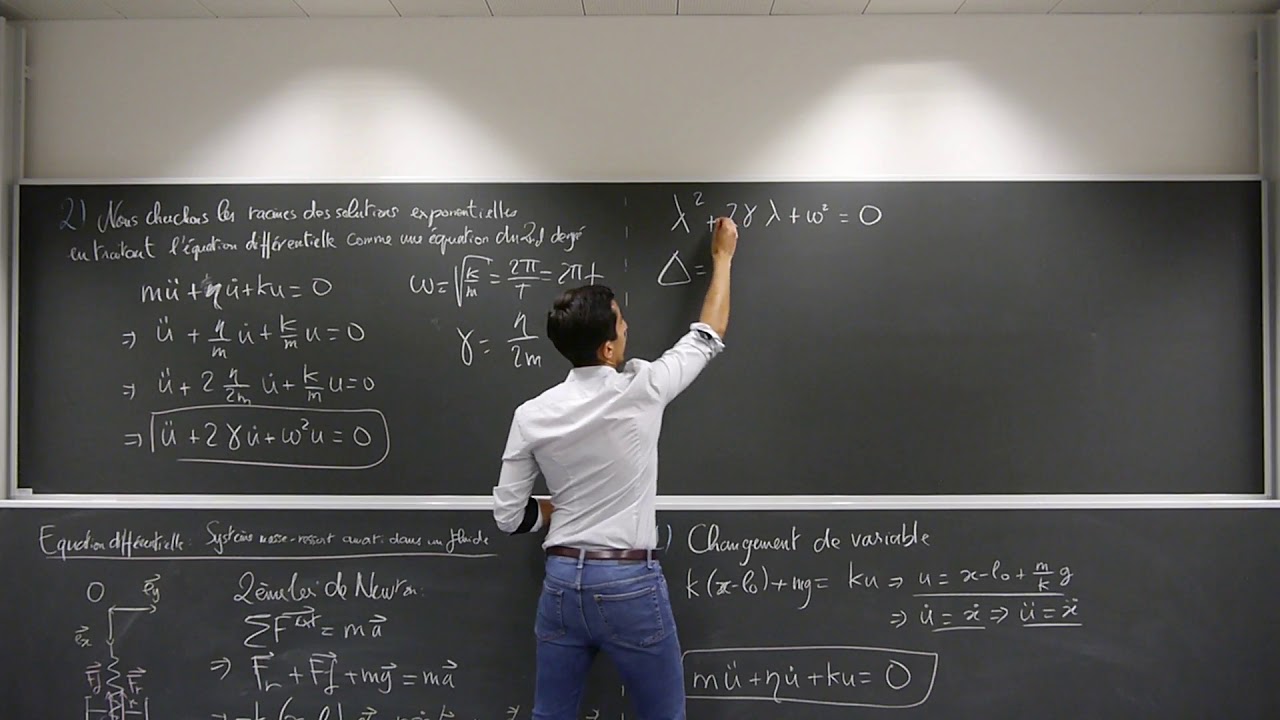 2) Nous cherchons les racines des solutions exponentielles
en traitant l'équation différentielle comme une équation du 2nd degré
mü + ηu̇ + ku = 0
⇒ ü + η/m u̇ + k/m u = 0
⇒ ü + 2 η/2m u̇ + k/m u = 0
⇒ ü + 2γu̇ + ω²u = 0
ω = √(k/m) = 2π/T = 2πf
γ = η/2m
λ² + 2γλ + ω² = 0
Δ =
Equation différentielle : Système masse-ressort amorti dans un fluide
O e⃗y
e⃗x
F⃗f F⃗r
2ème loi de Newton :
∑F⃗ext = ma⃗
⇒ F⃗r + F⃗f + mg⃗ = ma⃗
) Changement de variable
k(x-l₀) + mg = ku ⇒ u = x-l₀ + m/k g
⇒ u̇ = ẋ ⇒ ü = ẍ
mü + ηu̇ + ku = 0